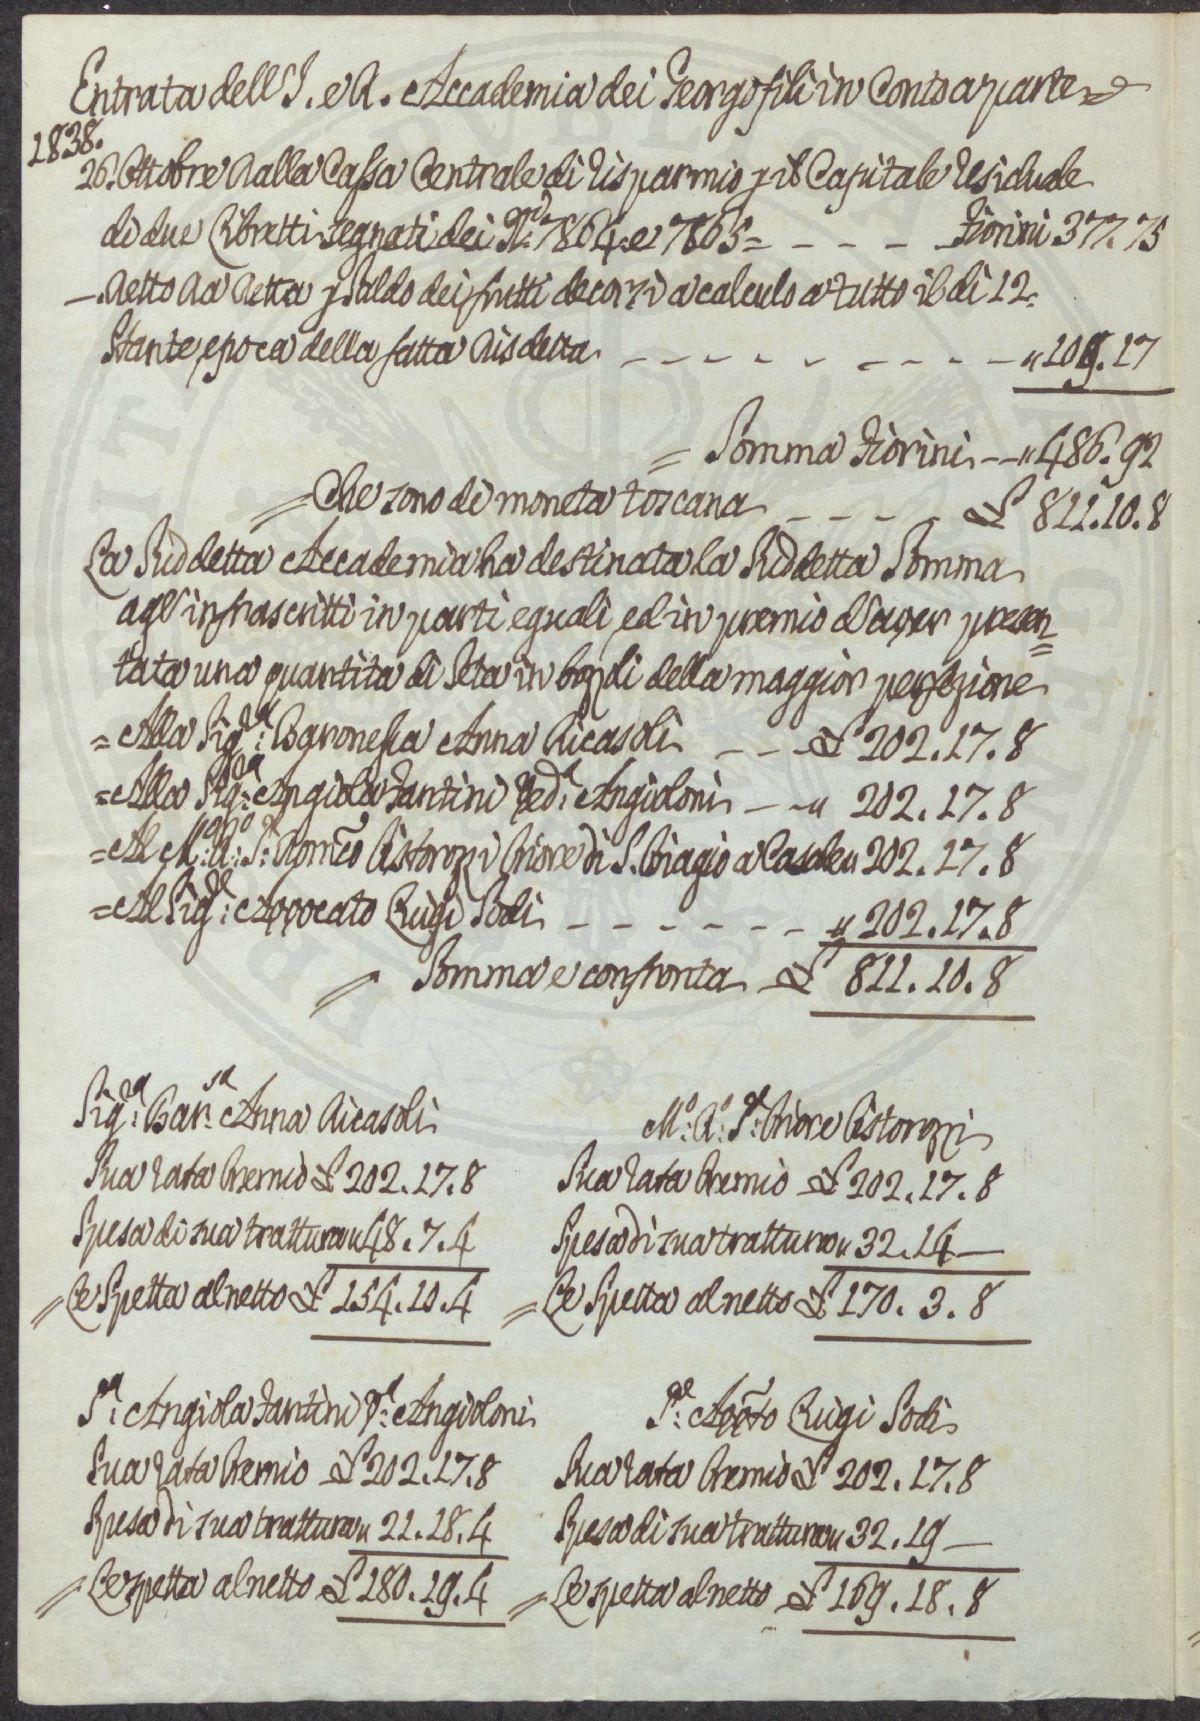 Entrata dell'I. e R. Accademia dei Georgofili in Conto a parte
1838.
26. Ottobre Dalla Cassa Centrale di risparmio p il Capitale residuale
di due Libretti segnati dei N.ri 7864. e 7865 = - - - - fiorini 377. 75
- Detto Da Detta p saldo dei frutti decorsi a calculo a tutto il di 12.
Stante, epoca della fatta disdetta - - - - - - - - - - " 109. 17
= Somma fiorini - - " 486. 92
= Che sono di moneta toscana - - - - £ 811. 10. 8
La Suddetta Accademia ha destinata la Suddetta Somma
agl'infrascritti in parti eguali, ed in premio d'aver presen=
tata una quantita di Seta in bozzoli della maggior perfezione
= Alla Sig.ra Baronessa Anna Ricasoli - - - £ 202. 17. 8
= Alla Sig.ra Angiola Fantini Ved.a Angioloni - - " 202. 17. 8
= Al M.o R.o S.r Romeo Ristorozzi Priore di S. Biagio a Casale " 202. 17. 8
= Al Sig.re Avvocato Luigi Sodi - - - - - - " 202. 17. 8
= Somma e confronta £ 811. 10. 8
Sig.ra Bar.sa Anna Ricasoli
Sua rata Premio £ 202. 17. 8
Spesa di sua trattura " 48. 7. 4
= Le Spetta al netto £ 154. 10. 4
M.o R.o S.r Priore Ristorozzi
Sua rata Premio £ 202. 17. 8
Spesa di sua trattura " 32. 14 —
= Le Spetta al netto £ 170. 3. 8
S.a Angiola Fantini V.a Angioloni
Sua rata Premio £ 202. 17. 8
Spesa di sua trattura " 21. 18. 4
= Le spetta al netto £ 180. 19. 4
S.re Avvto Luigi Sodi
Sua rata Premio £ 202. 17. 8
Spesa di sua trattura " 32. 19 —
= Le spetta al netto £ 169. 18. 8